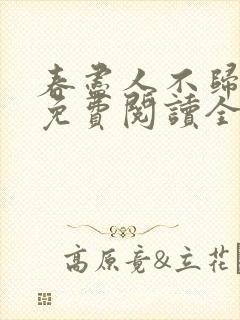 春盡人不歸
免費閱讀全
高原竟&立花